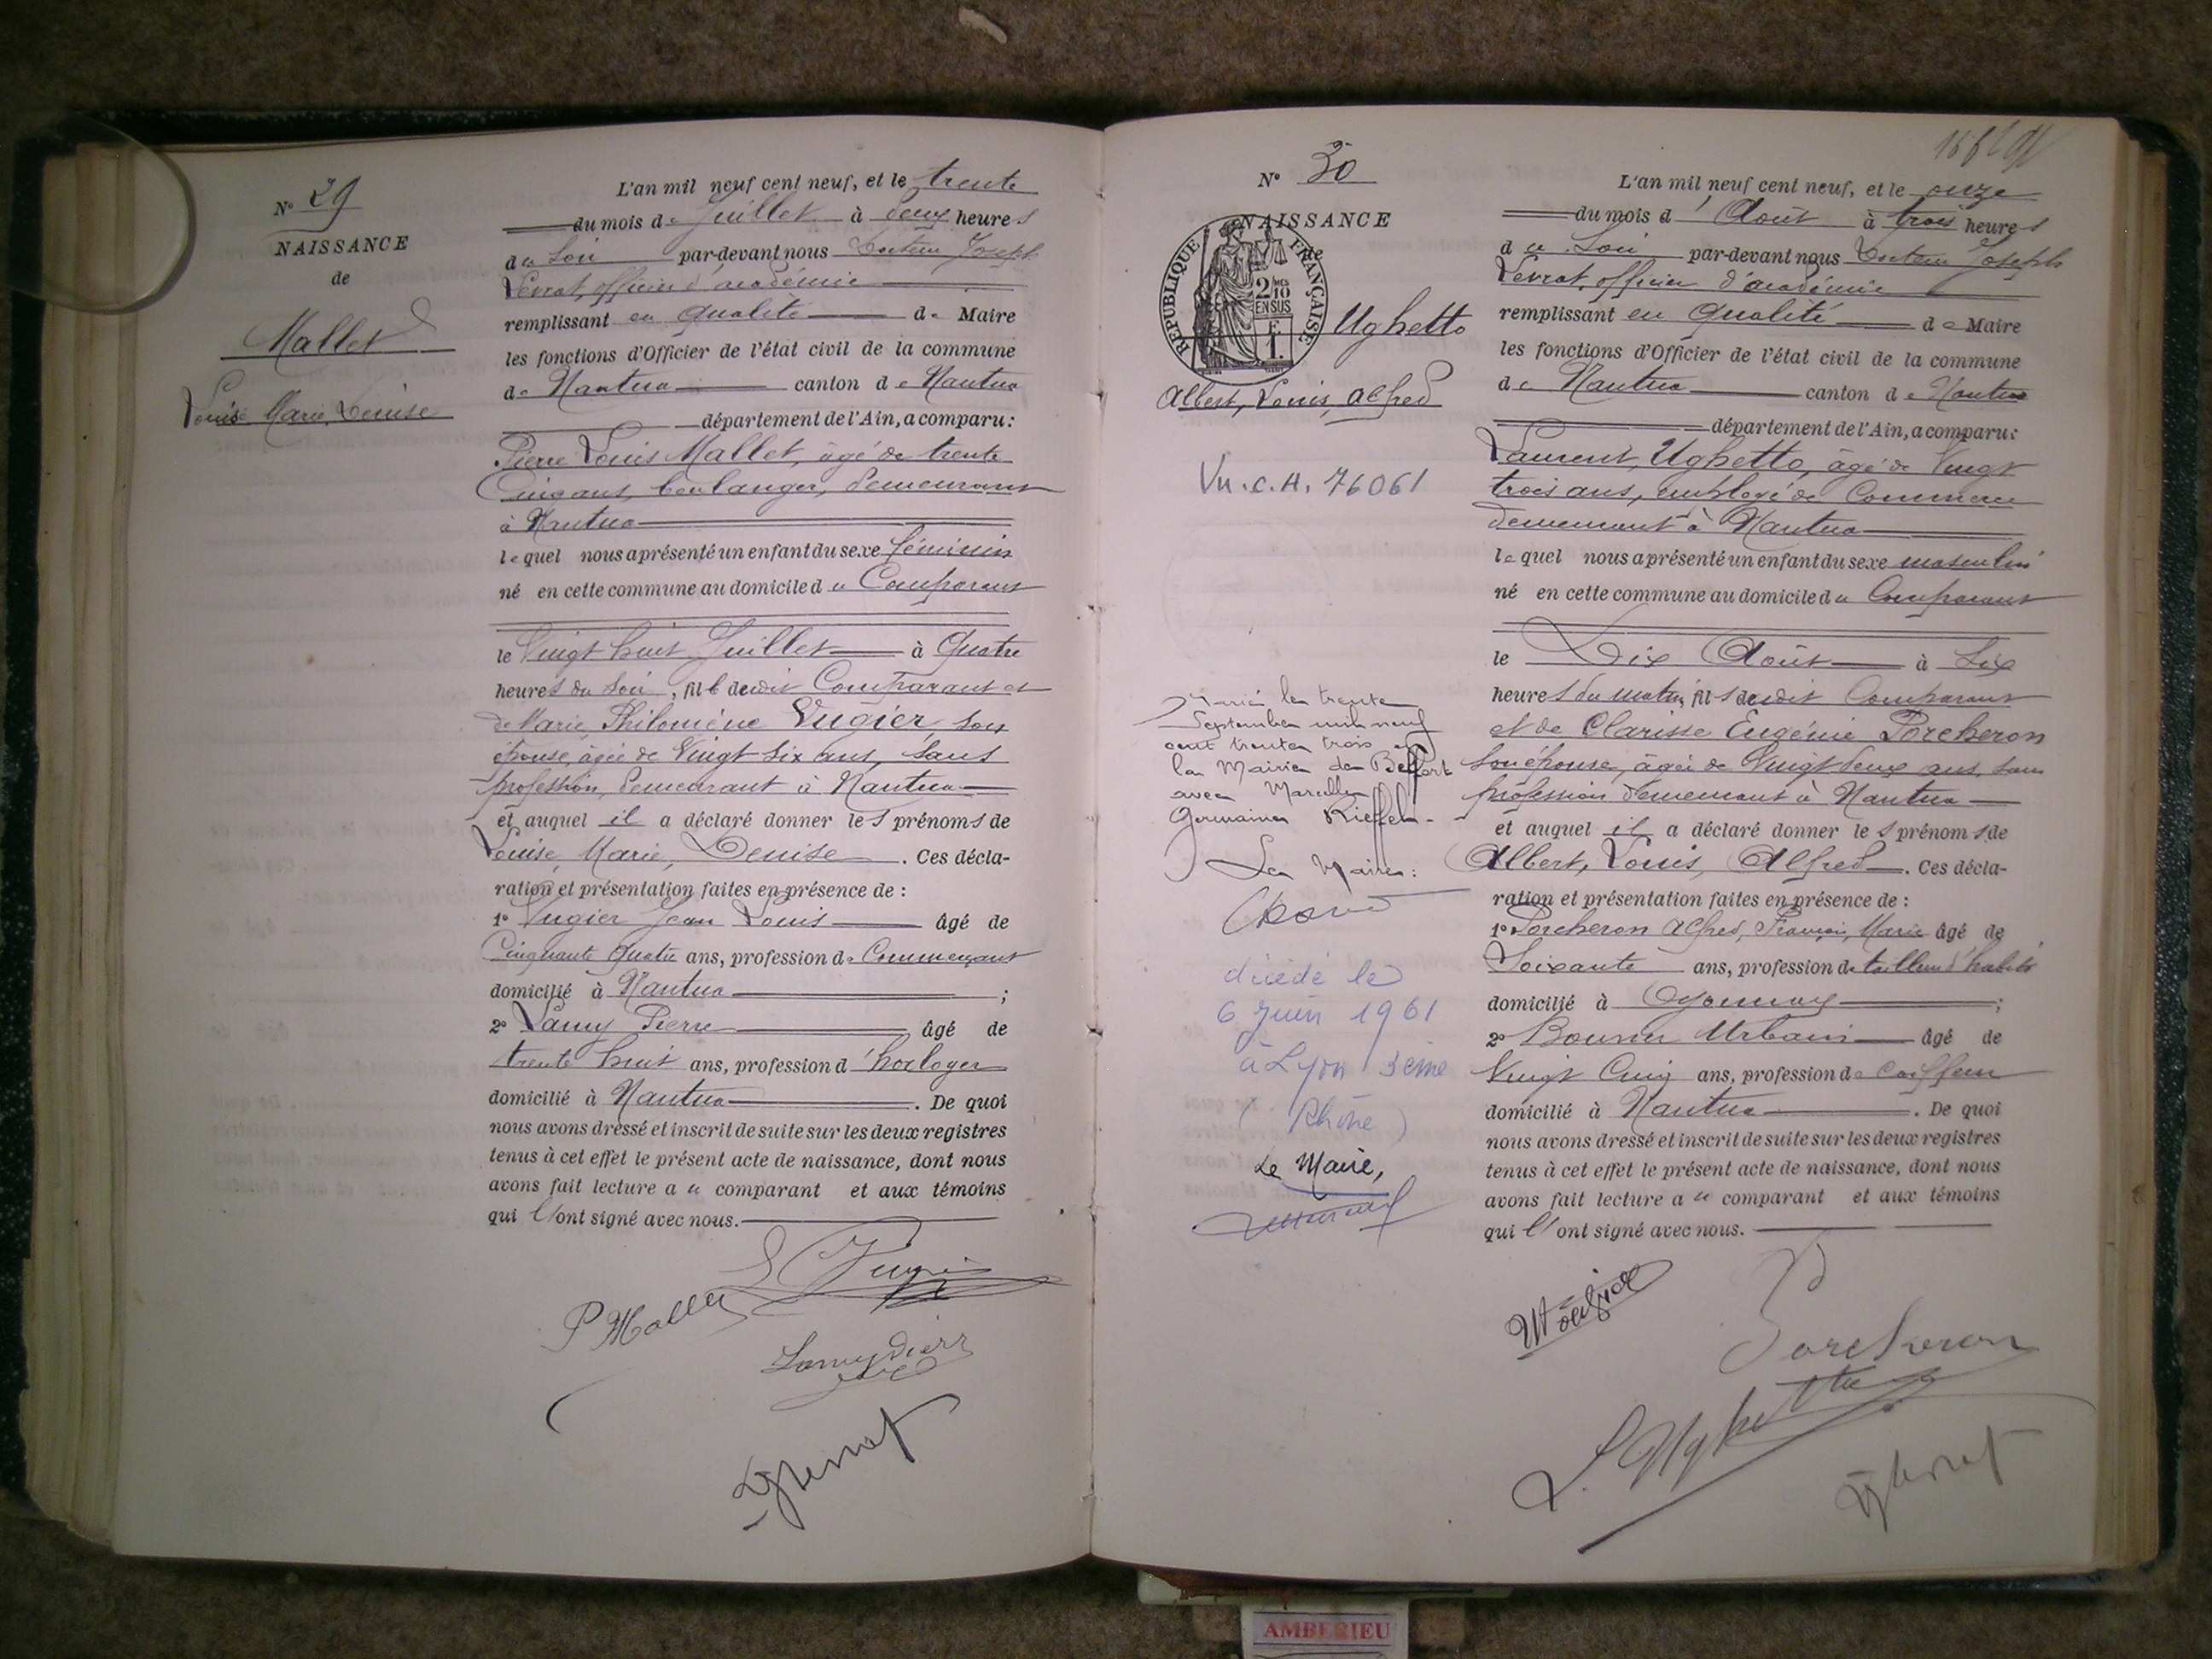 N° 29
NAISSANCE
de
Mallet
Louise Marie Denise
L'an mil neuf cent neuf, et le trente
du mois de Juillet à deux heures
du Soir par-devant nous Docteur Joseph
Levrat, officier d'académie
remplissant en qualité de Maire
les fonctions d'Officier de l'état civil de la commune
de Nantua canton de Nantua
département de l'Ain, a comparu:
Pierre Louis Mallet, âgé de trente
Cinq ans, boulanger, demeurant
à Nantua
lequel nous a présenté un enfant du sexe féminin
né en cette commune au domicile du Comparant
le Vingt huit Juillet à Quatre
heures du Soir, fille dudit Comparant et
de Marie, Philomène Vugier, son
épouse, âgée de Vingt Six ans, sans
profession, demeurant à Nantua
et auquel il a déclaré donner les prénoms de
Louise, Marie, Denise. Ces décla-
ration et présentation faites en présence de :
1° Vugier Jean Louis âgé de
Cinquante quatre ans, profession de Commerçant
domicilié à Nantua ;
2° Lamy Pierre âgé de
trente huit ans, profession d'horloger
domicilié à Nantua. De quoi
nous avons dressé et inscrit de suite sur les deux registres
tenus à cet effet le présent acte de naissance, dont nous
avons fait lecture au comparant et aux témoins
qui l'ont signé avec nous.
P Mallet
Lamy Pierre
N° 30
NAISSANCE
de
REPUBLIQUE FRANÇAISE
2/10
EN SUS
F.
1.
Ughetto
Albert, Louis, Alfred
Vu.C.H. 76061
Marié le trente
Septembre mil neuf
cent trente trois en
la Mairie de Belfort
avec Marcelle
Germaine Rieffel.
Le Maire:
décédé le
6 Juin 1961
à Lyon 3eme
(Rhône)
Le Maire,
L'an mil neuf cent neuf, et le onze
du mois d'Août à trois heures
du Soir par-devant nous Docteur Joseph
Levrat, officier d'académie
remplissant en qualité de Maire
les fonctions d'Officier de l'état civil de la commune
de Nantua canton de Nantua
département de l'Ain, a comparu:
Laurent, Ughetto, âgé de Vingt
trois ans, employé de Commerce
demeurant à Nantua
lequel nous a présenté un enfant du sexe masculin
né en cette commune au domicile du Comparant
le Dix Août à Six
heures du matin, fils dudit Comparant
et de Clarisse Eugénie Porcheron
Son épouse, âgée de Vingt deux ans, sans
profession demeurant à Nantua
et auquel il a déclaré donner les prénoms de
Albert, Louis, Alfred. Ces décla-
ration et présentation faites en présence de :
1° Porcheron Alfred, François, Marie âgé de
Soixante ans, profession de tailleur d'habits
domicilié à Oyonnax ;
2° Urbain âgé de
Vingt Cinq ans, profession de Coiffeur
domicilié à Nantua. De quoi
nous avons dressé et inscrit de suite sur les deux registres
tenus à cet effet le présent acte de naissance, dont nous
avons fait lecture au comparant et aux témoins
qui l'ont signé avec nous.
Porcheron
L. Ughetto
AMBERIEU